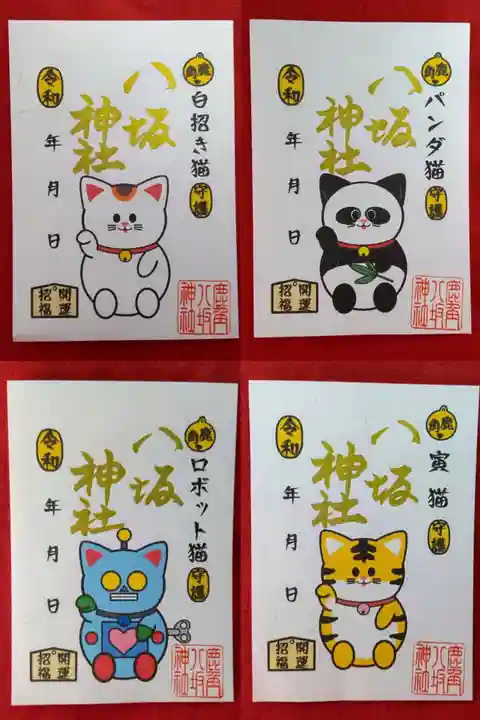 鹿角
白招き猫
守護
八坂
神社
令和
年月日
開運
招福
鹿角
八坂
神社
鹿角
パンダ猫
守護
八坂
神社
令和
年月日
開運
招福
鹿角
八坂
神社
鹿角
ロボット猫
守護
八坂
神社
令和
年月日
開運
招福
鹿角
八坂
神社
鹿角
寅猫
守護
八坂
神社
令和
年月日
開運
招福
鹿角
八坂
神社